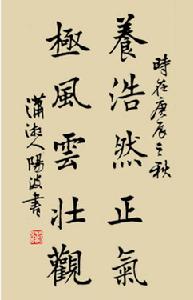 養浩然正氣
極風雲壯觀
時在庚辰之秋
瀟湘人陽波書